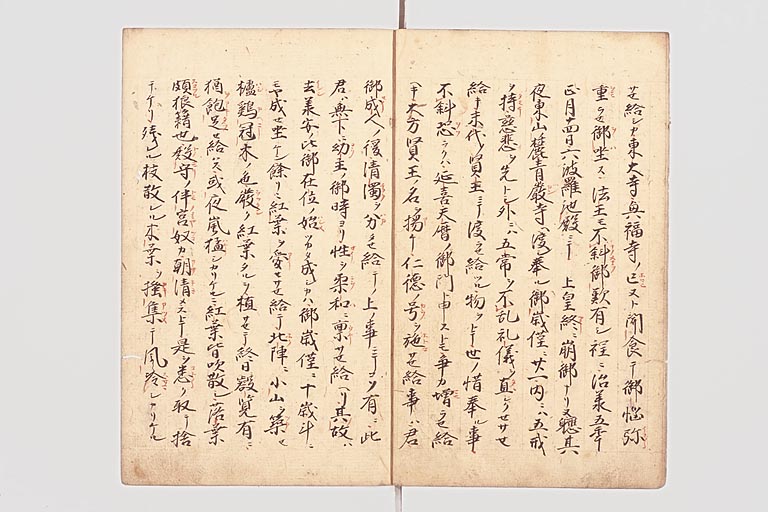 セ給シカ東大寺興福寺ノ亡ヌト聞食テ御悩弥
重ラせ御坐ス法王モ不斜御歎有シ程ニ治承五年
正月十四日六波羅池殿ニテ上皇終ニ崩御ナリヌ聴其
夜東山麓青巌寺ヘ渡シ奉ル御歳僅ニ廿一内ニハ五戒
ヲ持慈悲ヲ先トシ外ニハ五常ヲ不乱礼儀ヲ直クせサせ
給キ末代ノ賢王ニテ渡セ給ツル物ヲトテ世ノ惜奉ル事
不斜恐クハ延喜天暦ノ御門ト申ストモ争カ増ラセ給
ヘキ大方賢王ノ名ヲ揚ケ仁徳ノ号ヲ施セ給事ハ君
御成人ノ後清濁ヲ分セ給テノ上ノ事ニテコソ有ニ此
君ハ無下ニ幼主ノ御時ヨリ性ヲ柔和ニ稟セ給ヘリ其故ハ
去承安ノ比御在位ノ始ツカタ成シカハ御歳僅ニ十歳斗ニ
ヤ成セ坐ケン餘リニ紅葉ヲ愛セサセ給テ北陣ニ小山ヲ築せ
櫨鶏冠木ノ色厳ク紅葉タルヲ植サセテ終日叡覧有ニ
猶飽足セ給ハス或夜嵐猛シカリケルニ紅葉皆吹散シ落葉
頗狼籍也殿守ノ伴宮奴カ朝清メストテ是ヲ悉ク取リ捨
テケリ残ル枝散レル木葉ヲ掻集テ風冷シカリケル